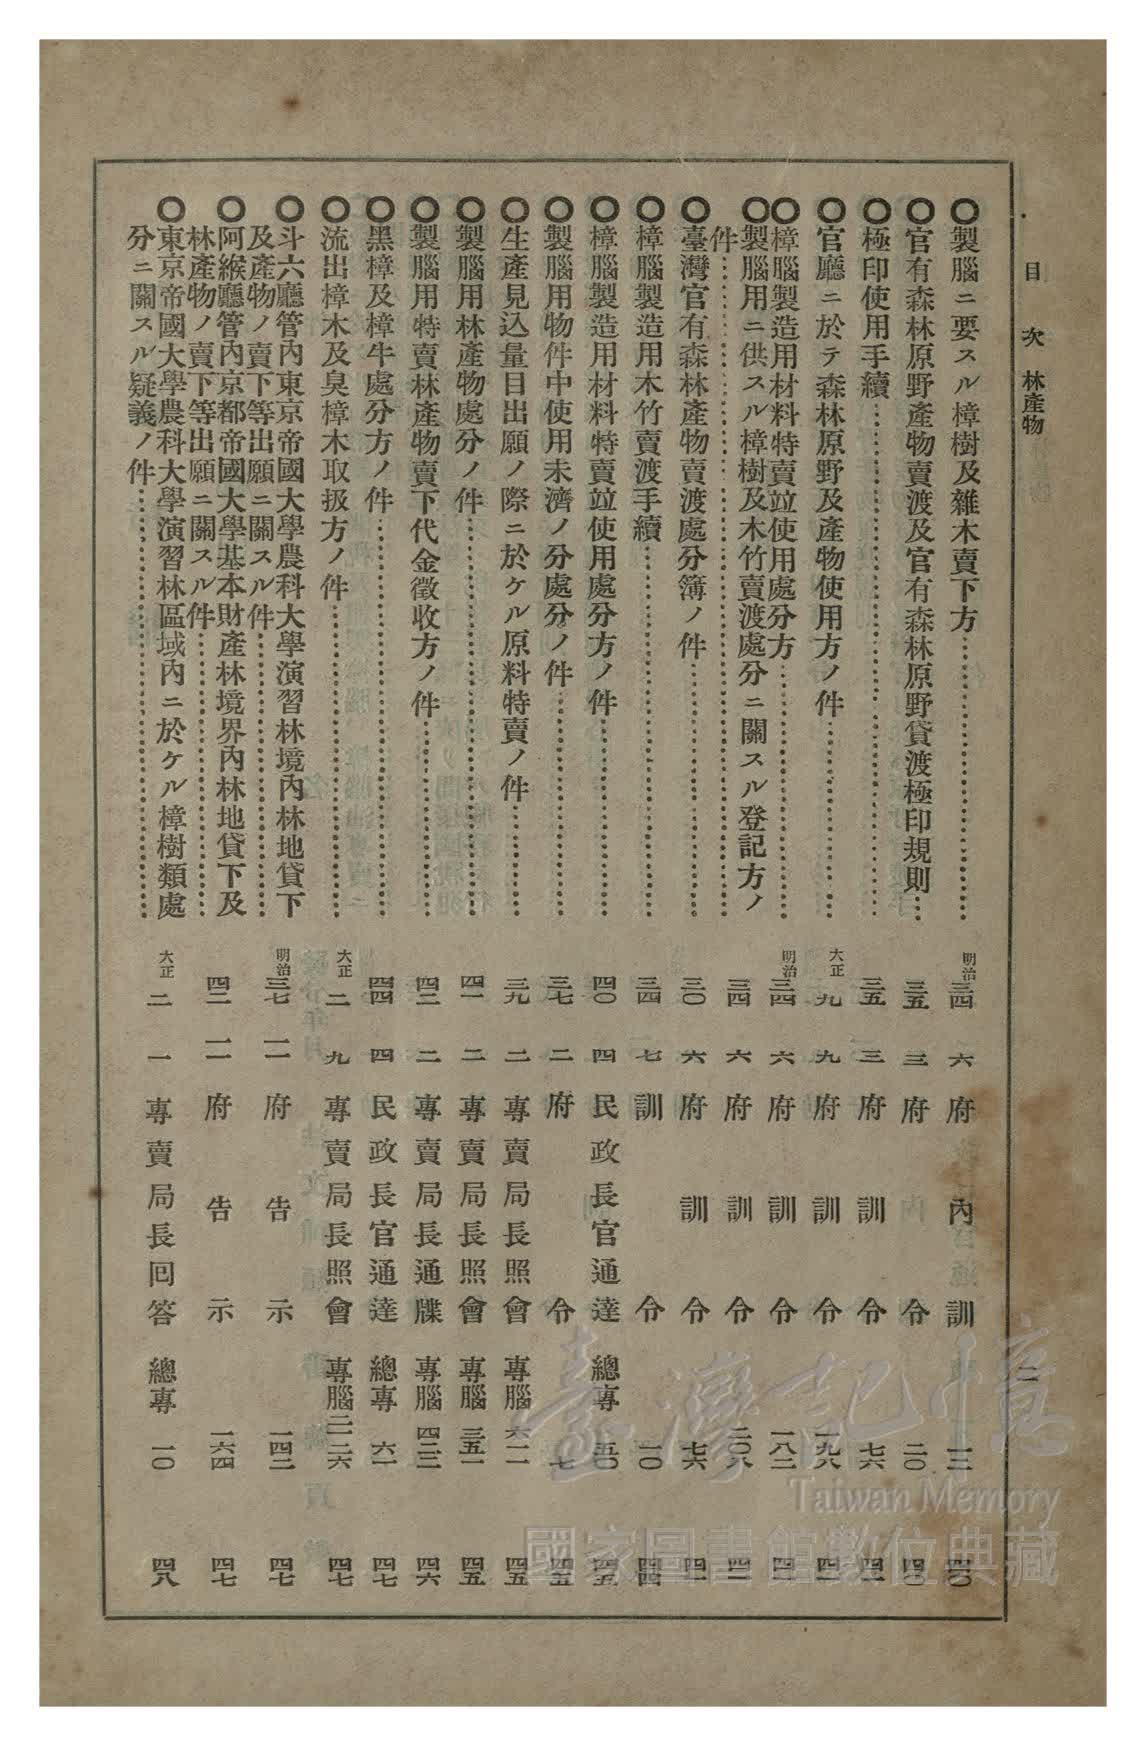 目次 林產物 二
◯製腦ニ要スル樟樹及雜木賣下方…… 明治三四 六 府內訓 一二 四〇
◯官有森林原野產物賣渡及官有森林原野貸渡極印規則… 三五 三 府令 二〇 四〇
◯極印使用手續…… 三五 三 府訓令 七六 四一
◯官廳ニ於テ森林原野及產物使用方ノ件…… 大正九 九 府訓令 一九八 四一
◯樟腦製造用材料特賣竝使用處分方…… 明治三四 六 府訓令 一八二 四一
◯製腦用ニ供スル樟樹及木竹賣渡處分ニ關スル登記方ノ
件…… 三四 六 府訓令 二〇八 四一
◯臺灣官有森林產物賣渡處分簿ノ件…… 三〇 六 府訓令 七六 四一
◯樟腦製造用木竹賣渡手續…… 三四 七 訓令 一〇 四四
◯樟腦製造用材料特賣竝使用處分方ノ件…… 四〇 四 民政長官通達 總專 五〇 四五
◯製腦用物件中使用未濟ノ分處分ノ件…… 三七 二 府令 七 四五
◯生產見込量目出願ノ際ニ於ケル原料特賣ノ件…… 三九 二 專賣局長照會 專腦 六一一 四五
◯製腦用林產物處分ノ件…… 四一 二 專賣局長照會 專腦 三五一 四五
◯製腦用特賣林產物賣下代金徵收方ノ件…… 四二 二 專賣局長通牒 專腦 四三二 四六
◯黑樟及樟牛處分方ノ件…… 四四 四 民政長官通達 總專 六一 四七
◯流出樟木及臭樟木取扱方ノ件…… 大正二 九 專賣局長照會 專腦 二一二六 四七
◯斗六廳管內東京帝國大學農科大學演習林境內林地貸下
及產物ノ賣下等出願ニ關スル件…… 明治三七 一一 府告示 一四二 四七
◯阿緱廳管內京都帝國大學基本財產林境界內林地貸下及
林產物ノ賣下等出願ニ關スル件…… 四二 一一 府告示 一六四 四七
◯東京帝國大學農科大學演習林區域內ニ於ケル樟樹類處
分ニ關スル疑義ノ件…… 大正二 一 專賣局長回答 總專 一〇 四八
臺灣記憶
Taiwan Memory
國家圖書館數位典藏